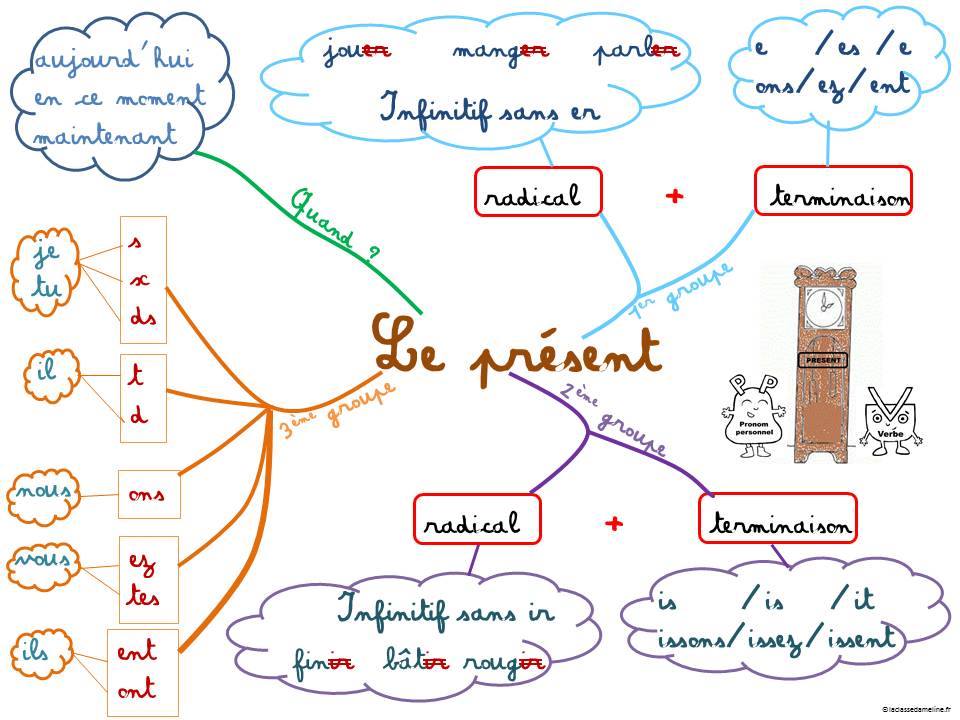 aujourd'hui
en ce moment
maintenant
jouer manger parler
Infinitif sans er
e / es / e
ons / ez / ent
radical + terminaison
Quand ?
1er groupe
je
tu
s
x
ds
il
t
d
nous
ons
vous
ez
tes
ils
ent
ont
Le présent
3ème groupe
2ème groupe
PRESENT
Pronom
personnel
Verbe
radical + terminaison
Infinitif sans ir
finir bâtir rougir
is / is / it
issons / issez / issent
©laclassedameline.fr